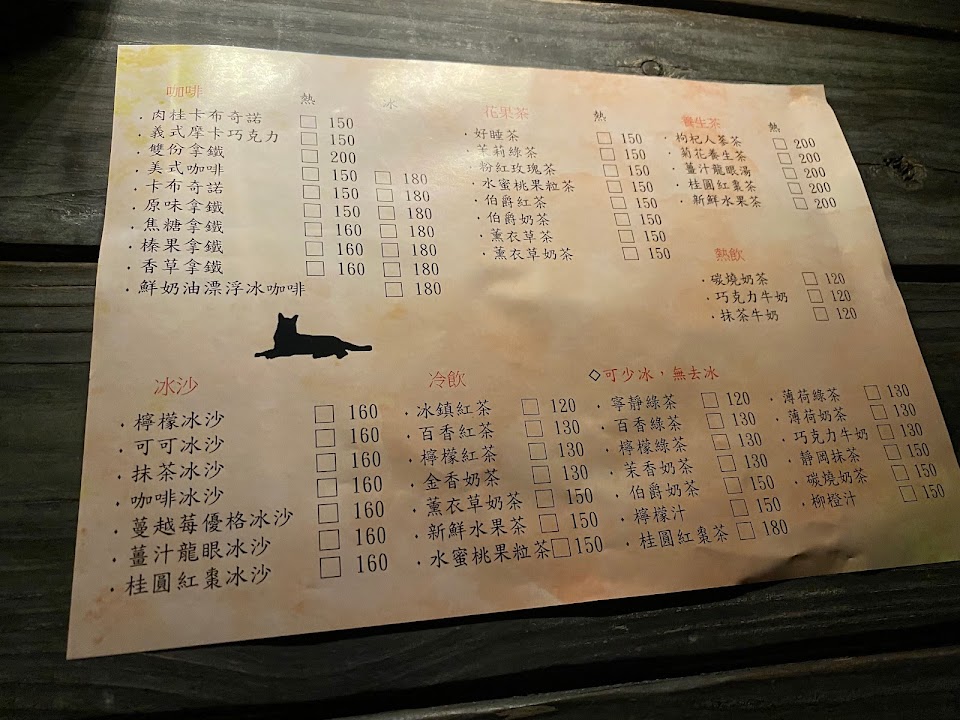 咖啡 熱 冰
．肉桂卡布奇諾 □ 150
．義式摩卡巧克力 □ 150
．雙份拿鐵 □ 200
．美式咖啡 □ 150 □ 180
．卡布奇諾 □ 150 □ 180
．原味拿鐵 □ 150 □ 180
．焦糖拿鐵 □ 160 □ 180
．榛果拿鐵 □ 160 □ 180
．香草拿鐵 □ 160 □ 180
．鮮奶油漂浮冰咖啡 □ 180
花果茶 熱
．好睡茶 □ 150
．茉莉綠茶 □ 150
．粉紅玫瑰茶 □ 150
．水蜜桃果粒茶 □ 150
．伯爵紅茶 □ 150
．伯爵奶茶 □ 150
．薰衣草茶 □ 150
．薰衣草奶茶 □ 150
養生茶 熱
．枸杞人蔘茶 □ 200
．菊花養生茶 □ 200
．薑汁龍眼湯 □ 200
．桂圓紅棗茶 □ 200
．新鮮水果茶 □ 200
熱飲
．碳燒奶茶 □ 120
．巧克力牛奶 □ 120
．抹茶牛奶 □ 120
冰沙
．檸檬冰沙 □ 160
．可可冰沙 □ 160
．抹茶冰沙 □ 160
．咖啡冰沙 □ 160
．蔓越莓優格冰沙 □ 160
．薑汁龍眼冰沙 □ 160
．桂圓紅棗冰沙 □ 160
冷飲 ◇可少冰，無去冰
．冰鎮紅茶 □ 120
．百香紅茶 □ 130
．檸檬紅茶 □ 130
．全香奶茶 □ 130
．薰衣草奶茶 □ 150
．新鮮水果茶 □ 150
．水蜜桃果粒茶 □ 150
．寧靜綠茶 □ 120
．百香綠茶 □ 130
．檸檬綠茶 □ 130
．茉香奶茶 □ 130
．伯爵奶茶 □ 150
．檸檬汁 □ 150
．桂圓紅棗茶 □ 180
．薄荷綠茶 □ 130
．薄荷奶茶 □ 130
．巧克力牛奶 □ 130
．靜岡抹茶 □ 150
．碳燒奶茶 □ 150
．柳橙汁 □ 150